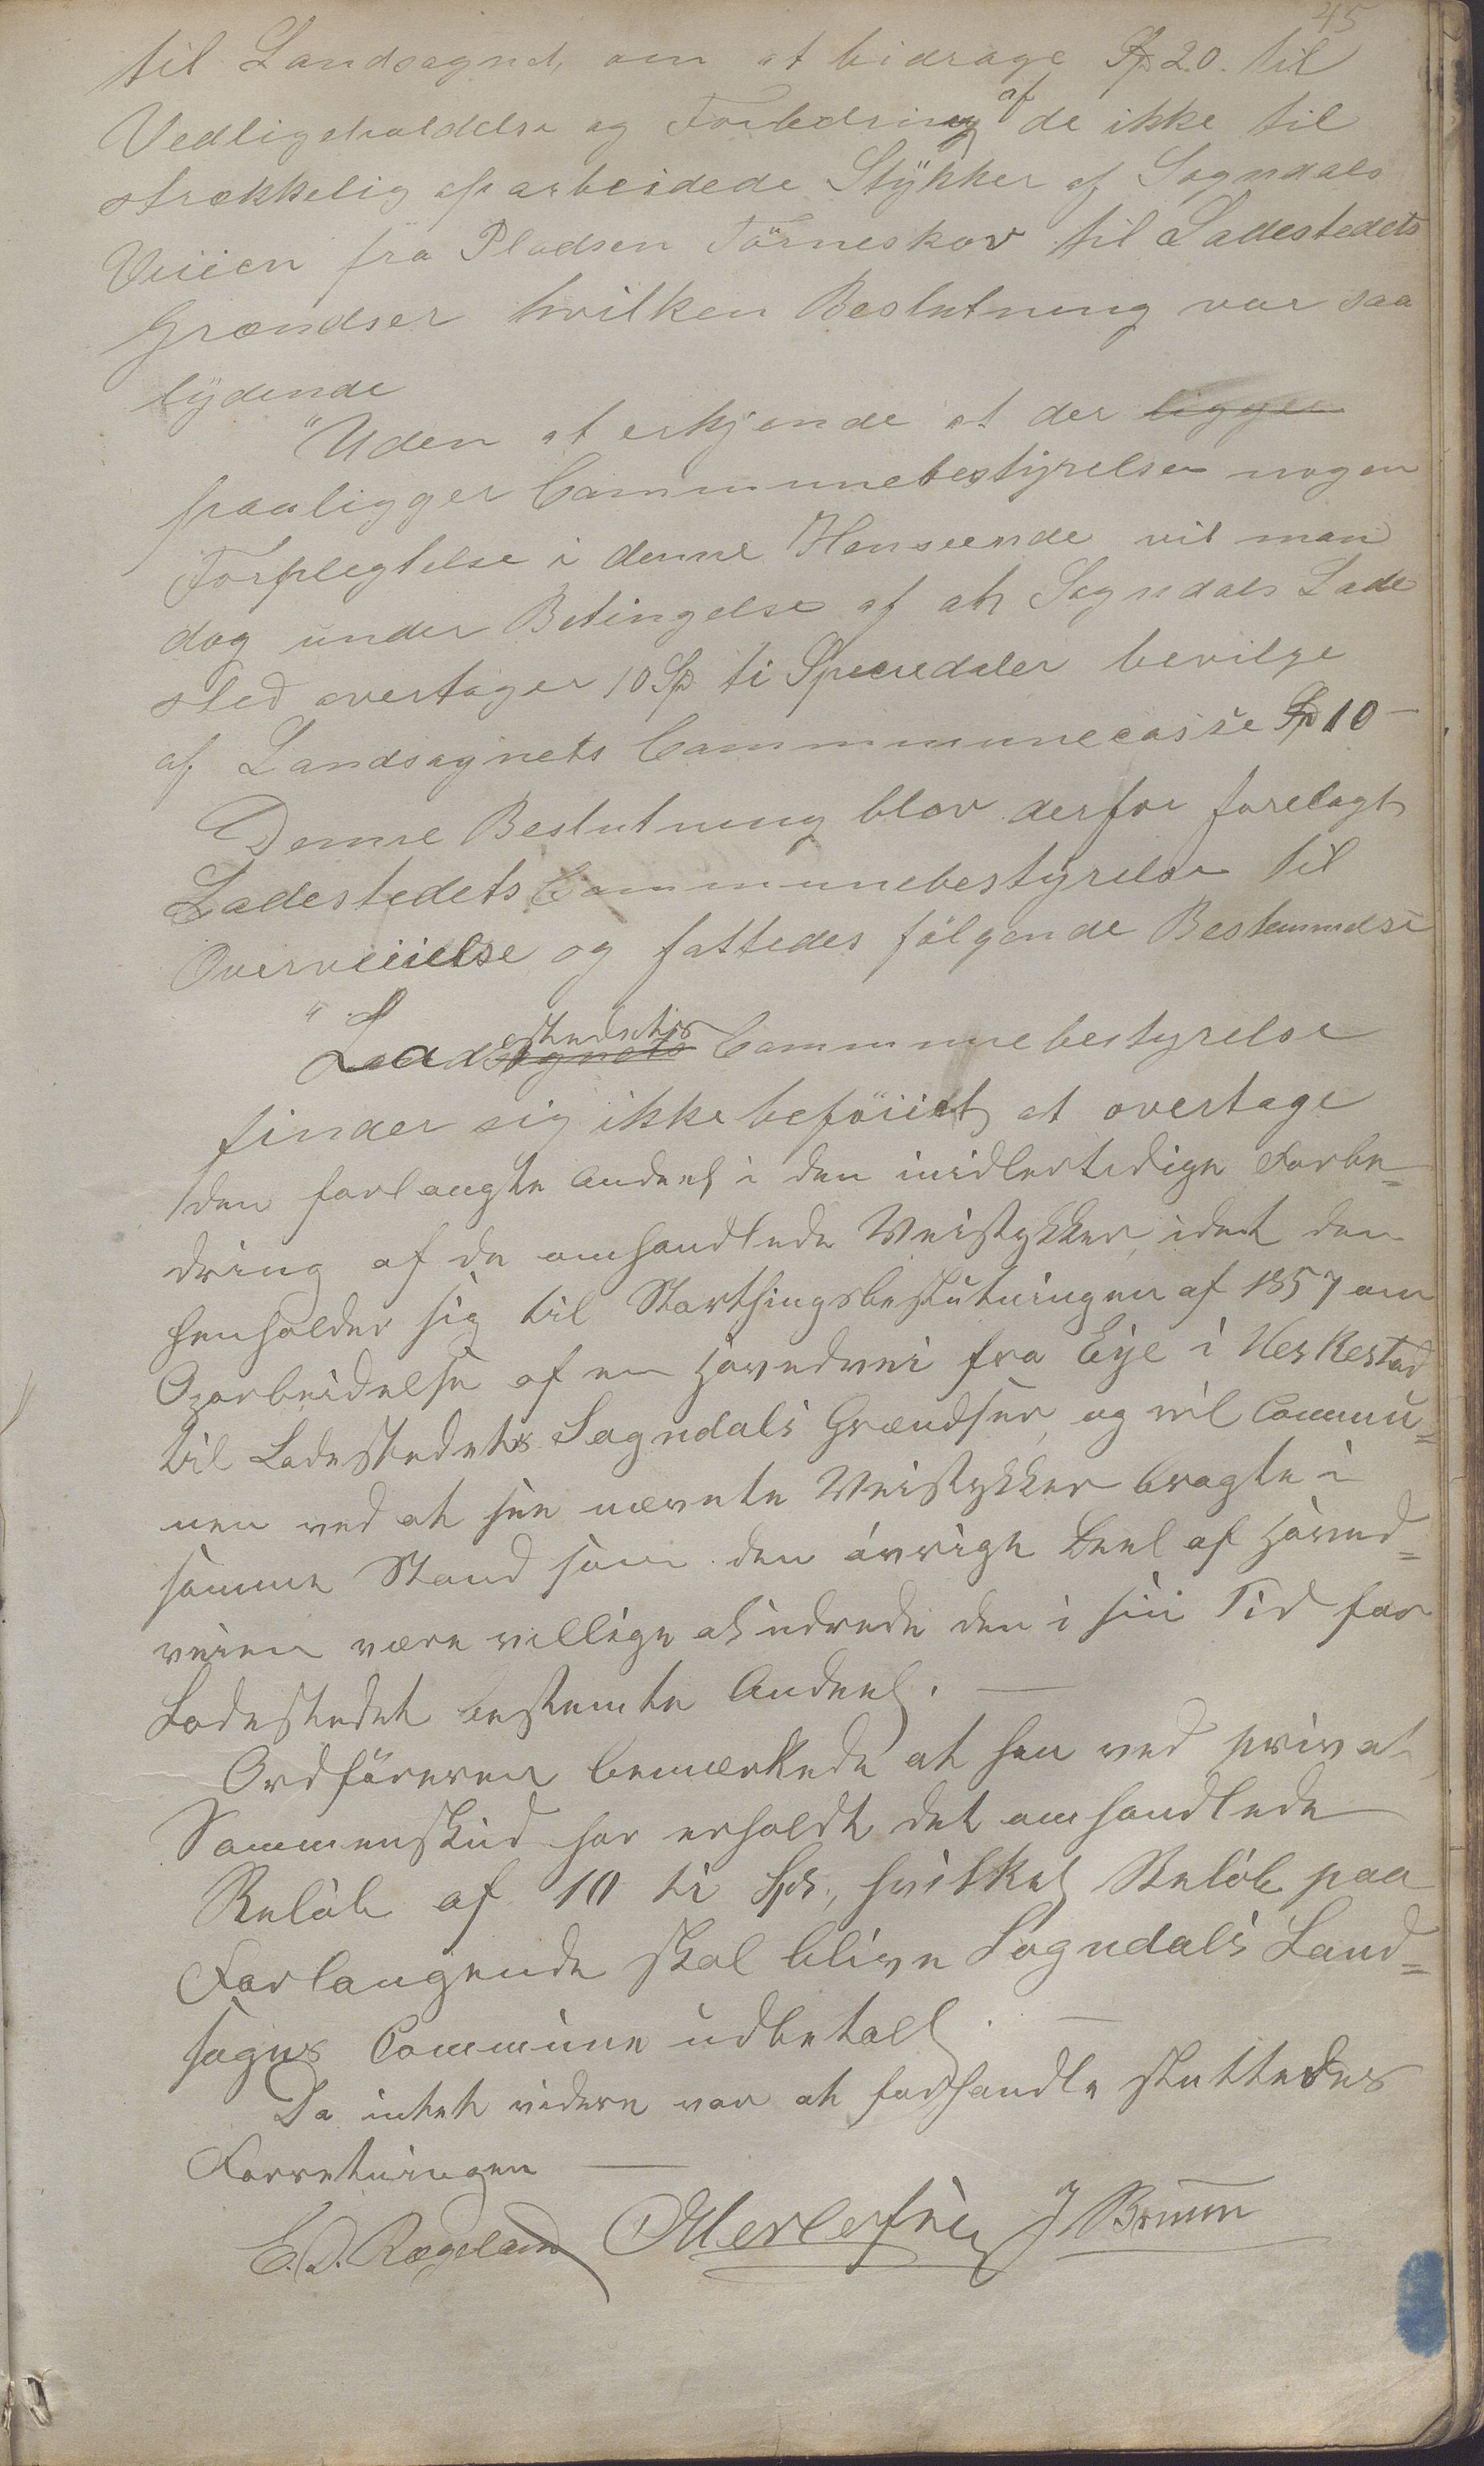 45
til Landsognet, om at bidrage Sp 20. til
Vedligeholdelse og Forbedring af de ikke til
strækkelig oparbeidede Stÿkker af Sogndals
Veiien fra Pladsen Törneskov til Ladestedets
Grændser hvilken Beslutning var saa
lÿdende
"Uden at erkjende at der ligger
paaligger Communebestyrelsen nogen
Forpligtelse i denne Henseende vil man
dog under Betingelse af at Sogndals Lade
sted overtager 10 Sp ti Speciedaler bevilge
af Landsognets Communecasse Sp 10 –
Denne Beslutning blev derfor forelagt
Ladestedets Communebestyrelse til
Overveiielse og fattedes fölgende Bestemmelse
"Ladsognets stedets Communebestyrelse
finder sig ikke beföiiet at overtage
den forlangte Andeel i den midlertidige Forbe=
dring af de omhandlede Veistykker, idet den
henholder sig til Storthingsbeslutningen af 1857 om
Oparbeidelse af en Hovedvei fra Eije i Heskestad
til Ladestedets Sogndals Grændser, og vil Commu=
nen ved at see nævnte Veistykker bragte i
samme Stand som den övrige Deel af Hoved=
veien være villige at udrede den i sin Tid for
Ladestedet bestemte Andeel. —
Ordföreren bemærkede at han ved privat
Sammenskud har erholdt det omhandlede
Belöb af 10 ti Spd, hvilket Belöb paa
Forlangende skal blive Sogndals Land=
sogns Commune udbetalt. —
Da intet videre var at forhandle sluttedes
Forretningen —
E. D. Rægeland J Bruun